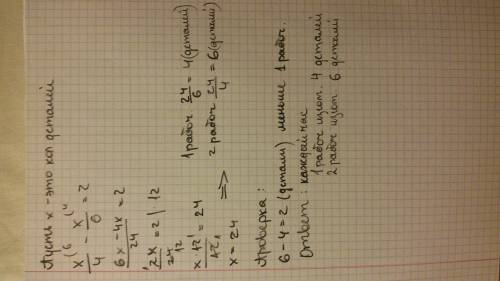 Пусть x - это кол деталей
x(6/4 - x(4/6 = 2
6x - 4x/24 = 2
2x/24 = 2 | · 12
x · 12/12 = 24
x = 24
=>
1 рабоч 24/6 = 4 (деталей)
2 рабоч 24/4 = 6 (деталей)
Проверка:
6 - 4 = 2 (детали) меньше 1 рабоч.
Ответ: каждый час
1 рабоч изгот. 4 деталей
2 рабоч изгот 6 деталей